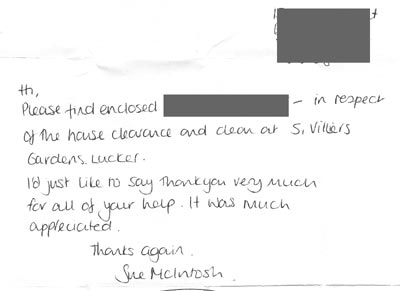 Hi,
Please find enclosed – in respect
of the house clearance and clean at 5, Villiers
Gardens, Lucker.
I'd just like to say thankyou very much
for all of your help. It was much
appreciated.
Thanks again.
Sue McIntosh.